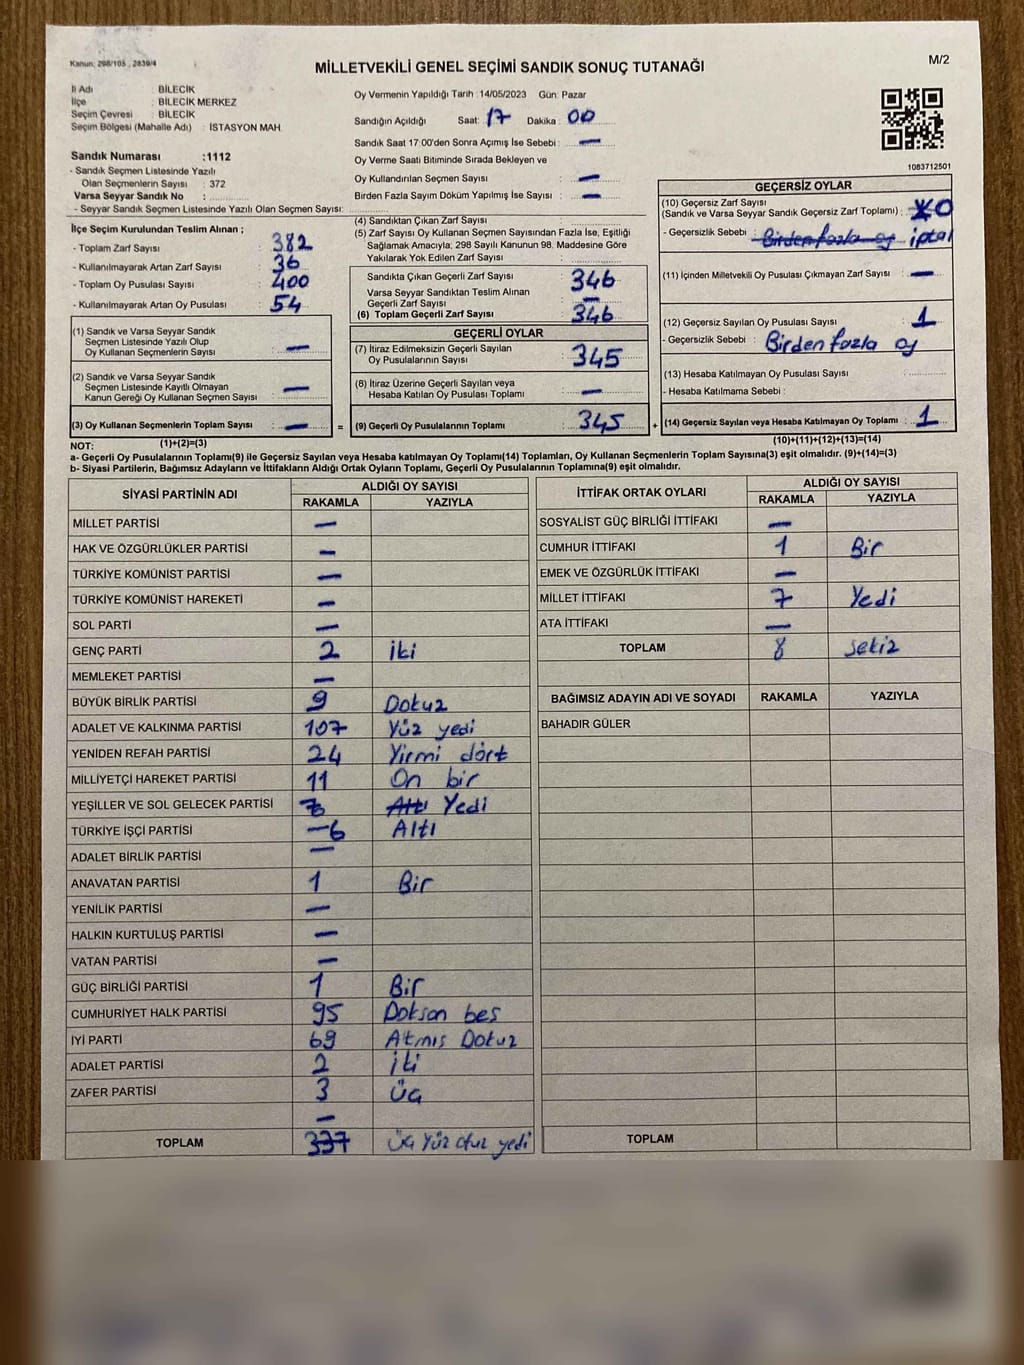 Kanun: 298/105 , 2839/4
M/2
MİLLETVEKİLİ GENEL SEÇİMİ SANDIK SONUÇ TUTANAĞI
İl Adı BİLECİK
İlçe : BİLECİK MERKEZ
Seçim Çevresi BİLECİK
Seçim Bölgesi (Mahalle Adı) : İSTASYON MAH
Sandık Numarası :1112
- Sandık Seçmen Listesinde Yazılı
Olan Seçmenlerin Sayısı : 372
Varsa Seyyar Sandık No :
- Seyyar Sandık Seçmen Listesinde Yazılı Olan Seçmen Sayısı:
Oy Vermenin Yapıldığı Tarih :14/05/2023 Gün: Pazar
Sandığın Açıldığı Saat: 17 Dakika: 00
Sandık Saat 17:00'den Sonra Açımış İse Sebebi : —
Oy Verme Saati Bitiminde Sırada Bekleyen ve
Oy Kullandırılan Seçmen Sayısı : —
Birden Fazla Sayım Döküm Yapılmış İse Sayısı : —
1083712501
İlçe Seçim Kurulundan Teslim Alınan ;
- Toplam Zarf Sayısı : 382
- Kullanılmayarak Artan Zarf Sayısı : 36
- Toplam Oy Pusulası Sayısı : 400
- Kullanılmayarak Artan Oy Pusulası : 54
(1) Sandık ve Varsa Seyyar Sandık
Seçmen Listesinde Yazılı Olup
Oy Kullanan Seçmenlerin Sayısı : —
(2) Sandık ve Varsa Seyyar Sandık
Seçmen Listesinde Kayıtlı Olmayan
Kanun Gereği Oy Kullanan Seçmen Sayısı : —
(3) Oy Kullanan Seçmenlerin Toplam Sayısı : —
(4) Sandıktan Çıkan Zarf Sayısı :
(5) Zarf Sayısı Oy Kullanan Seçmen Sayısından Fazla İse, Eşitliği
Sağlamak Amacıyla; 298 Sayılı Kanunun 98. Maddesine Göre
Yakılarak Yok Edilen Zarf Sayısı :
Sandıkta Çıkan Geçerli Zarf Sayısı : 346
Varsa Seyyar Sandıktan Teslim Alınan
Geçerli Zarf Sayısı : —
(6) Toplam Geçerli Zarf Sayısı : 346
GEÇERLİ OYLAR
(7) İtiraz Edilmeksizin Geçerli Sayılan
Oy Pusulalarının Sayısı : 345
(8) İtiraz Üzerine Geçerli Sayılan veya
Hesaba Katılan Oy Pusulası Toplamı : —
= (9) Geçerli Oy Pusulalarının Toplamı : 345
GEÇERSİZ OYLAR
(10) Geçersiz Zarf Sayısı
(Sandık ve Varsa Seyyar Sandık Geçersiz Zarf Toplamı) : 0
- Geçersizlik Sebebi : Birden fazla oy iptal
(11) İçinden Milletvekili Oy Pusulası Çıkmayan Zarf Sayısı : —
(12) Geçersiz Sayılan Oy Pusulası Sayısı : 1
- Geçersizlik Sebebi : Birden fazla oy
(13) Hesaba Katılmayan Oy Pusulası Sayısı :
- Hesaba Katılmama Sebebi :
+ (14) Geçersiz Sayılan veya Hesaba Katılmayan Oy Toplamı : 1
NOT: (1)+(2)=(3)
(10)+(11)+(12)+(13)=(14)
a- Geçerli Oy Pusulasının Toplamı(9) ile Geçersiz Sayılan veya Hesaba katılmayan Oy Toplamı(14) Toplamları, Oy Kullanan Seçmenlerin Toplam Sayısına(3) eşit olmalıdır. (9)+(14)=(3)
b- Siyasi Partilerin, Bağımsız Adayların ve İttifakların Aldığı Ortak Oyların Toplamı, Geçerli Oy Pusulalarının Toplamına(9) eşit olmalıdır.
SİYASİ PARTİNİN ADI ALDIĞI OY SAYISI
RAKAMLA YAZIYLA
MİLLET PARTİSİ —
HAK VE ÖZGÜRLÜKLER PARTİSİ —
TÜRKİYE KOMÜNİST PARTİSİ —
TÜRKİYE KOMÜNİST HAREKETİ —
SOL PARTİ —
GENÇ PARTİ 2 iki
MEMLEKET PARTİSİ —
BÜYÜK BİRLİK PARTİSİ 9 Dokuz
ADALET VE KALKINMA PARTİSİ 107 Yüz yedi
YENİDEN REFAH PARTİSİ 24 Yirmi dört
MİLLİYETÇİ HAREKET PARTİSİ 11 On bir
YEŞİLLER VE SOL GELECEK PARTİSİ 7 Altı Yedi
TÜRKİYE İŞÇİ PARTİSİ —6 Altı
ADALET BİRLİK PARTİSİ —
ANAVATAN PARTİSİ 1 Bir
YENİLİK PARTİSİ —
HALKIN KURTULUŞ PARTİSİ —
VATAN PARTİSİ —
GÜÇ BİRLİĞİ PARTİSİ 1 Bir
CUMHURİYET HALK PARTİSİ 95 Doksan beş
İYİ PARTİ 69 Atmış Dokuz
ADALET PARTİSİ 2 iki
ZAFER PARTİSİ 3 Üç
—
TOPLAM 337 Üç Yüz otuz yedi
İTTİFAK ORTAK OYLARI ALDIĞI OY SAYISI
RAKAMLA YAZIYLA
SOSYALİST GÜÇ BİRLİĞİ İTTİFAKI —
CUMHUR İTTİFAKI 1 Bir
EMEK VE ÖZGÜRLÜK İTTİFAKI —
MİLLET İTTİFAKI 7 Yedi
ATA İTTİFAKI —
TOPLAM 8 sekiz
BAĞIMSIZ ADAYIN ADI VE SOYADI RAKAMLA YAZIYLA
BAHADIR GÜLER
TOPLAM